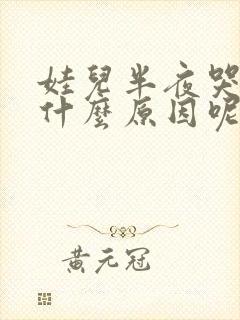 娃兒半夜哭
什麼原因呢
黃元冠